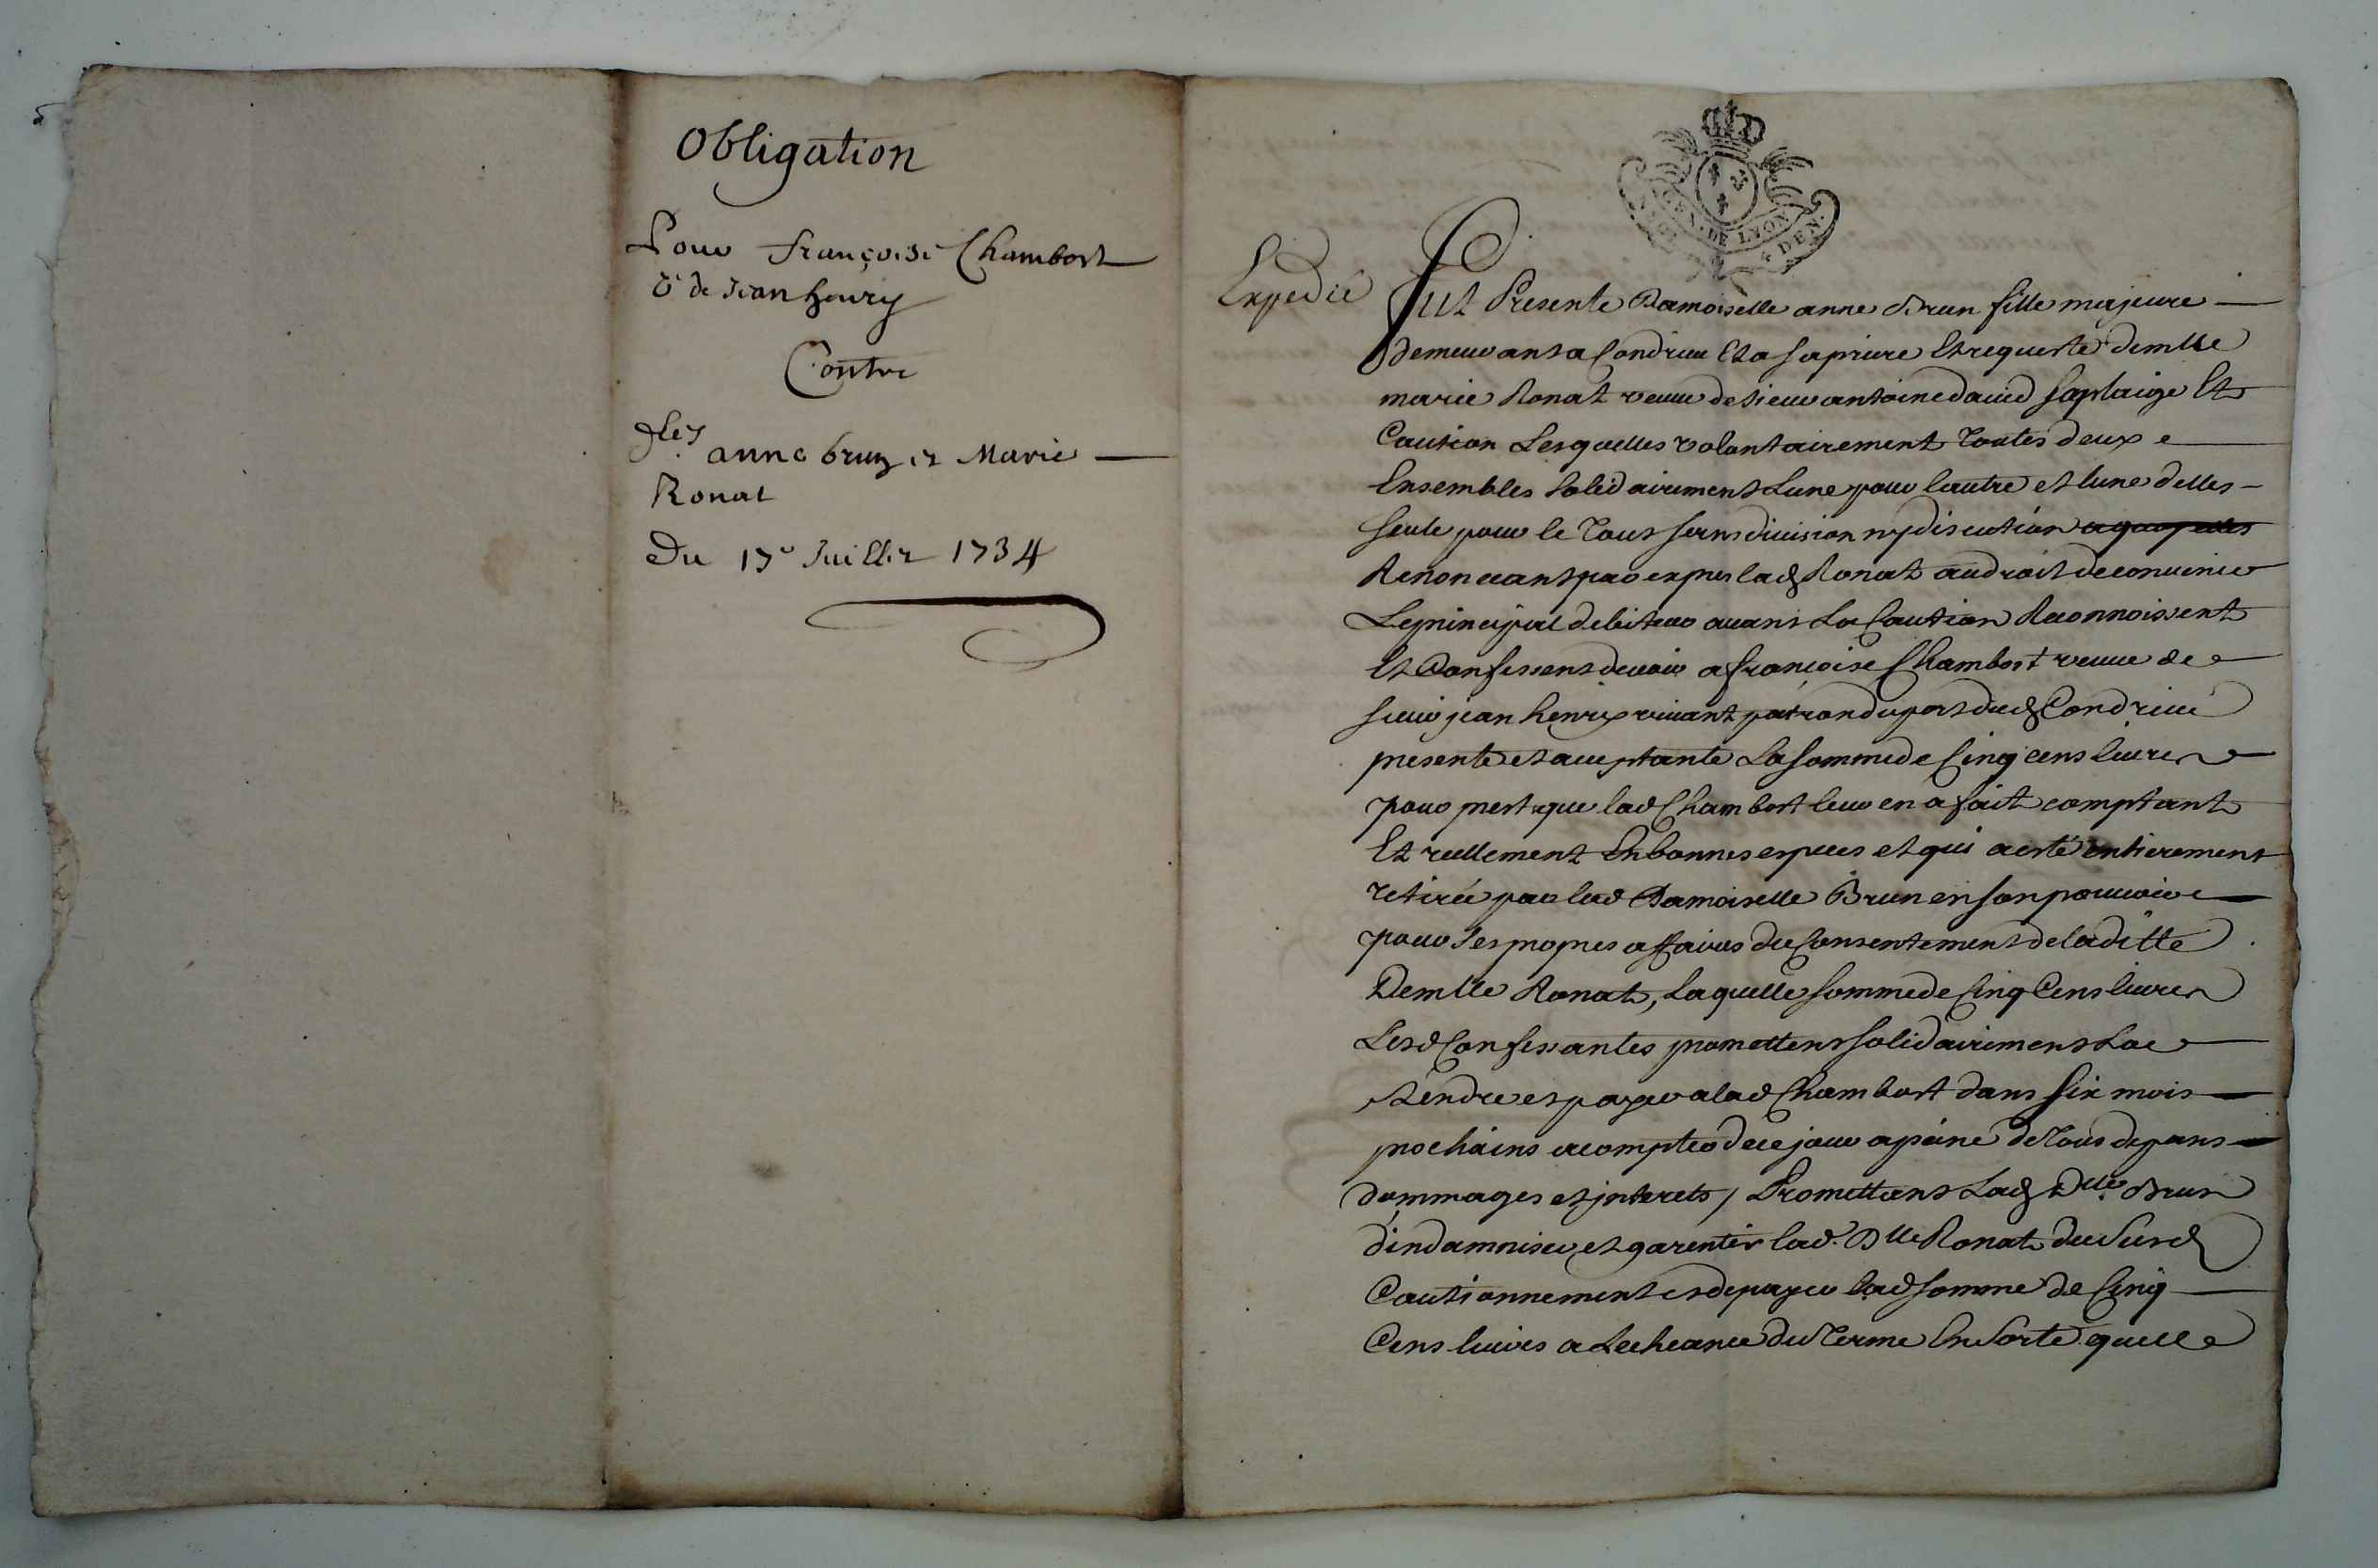 Obligation
Pour françoise Chambost
Ve de Jean henry
Contre
Dlles anne brun et Marie
Ronat
Du 17e Juillet 1734
GEN. DE LYON
DEN.
Expedié
Fut Presente Damoiselle anne Brun fille majeure
demeurant a Condrieu Et a sa priere Et requeste demlle
marie Ronat veuve de sieur antoine david sa plaige Et
Caution Lesquelles volontairement Toutes deux
Ensembles solidairement Lune pour lautre et lune delles
seule pour le Tout sans division ny discution
Renoncant par expres lad Ronat au droit de convenir
Le principal debiteur avant La Caution Reconnoissent
Et Confessent devoir a françoise Chambost veuve de
sieur jean henry vivant patron du port dud Condrieu
presente et acceptante La somme de Cinq cens livres
pour prest que lad Chambost leur en a fait comptant
Et reellement En bonnes especes et qui a esté entierement
retirée par lad Damoiselle Brun en son pouvoir
pour ses propres affaires du Consentement de laditte
Demlle Ronat, Laquelle somme de Cinq Cens livres
Lesd Confessantes promettent solidairement La
rendre et payer a lad Chambost dans six mois
prochains a compter de ce jour a peine de Tous depans
dommages et jnterets, Promettant Lad Dlle Brun
d'indamniser et garentir lad. Dlle Ronat du Susd
Cautionnement et de payer lad somme de Cinq
Cens livres a Lecheance du Terme En Sorte quelle